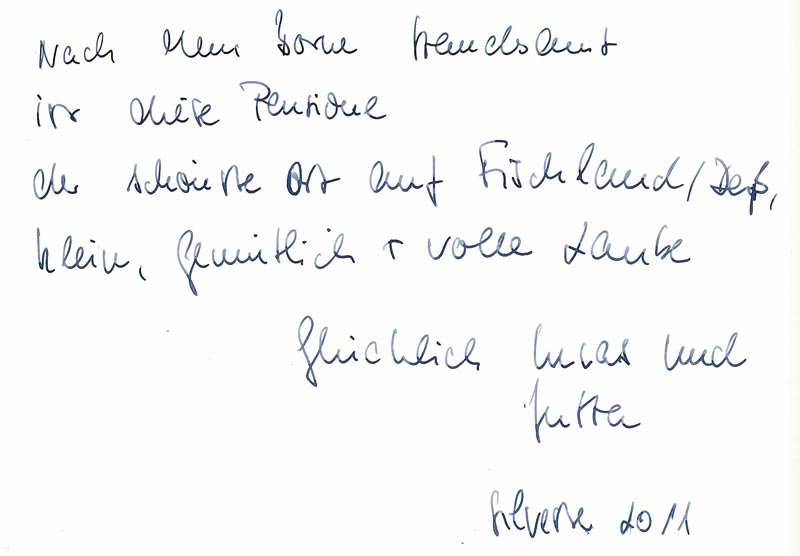 Nach dem Borner Standesamt
ist diese Pension
der schönste Ort auf Fischland/Darß,
klein, gemütlich + volle Liebe
Glücklich Lucas und
Jutta
Silvester 2011